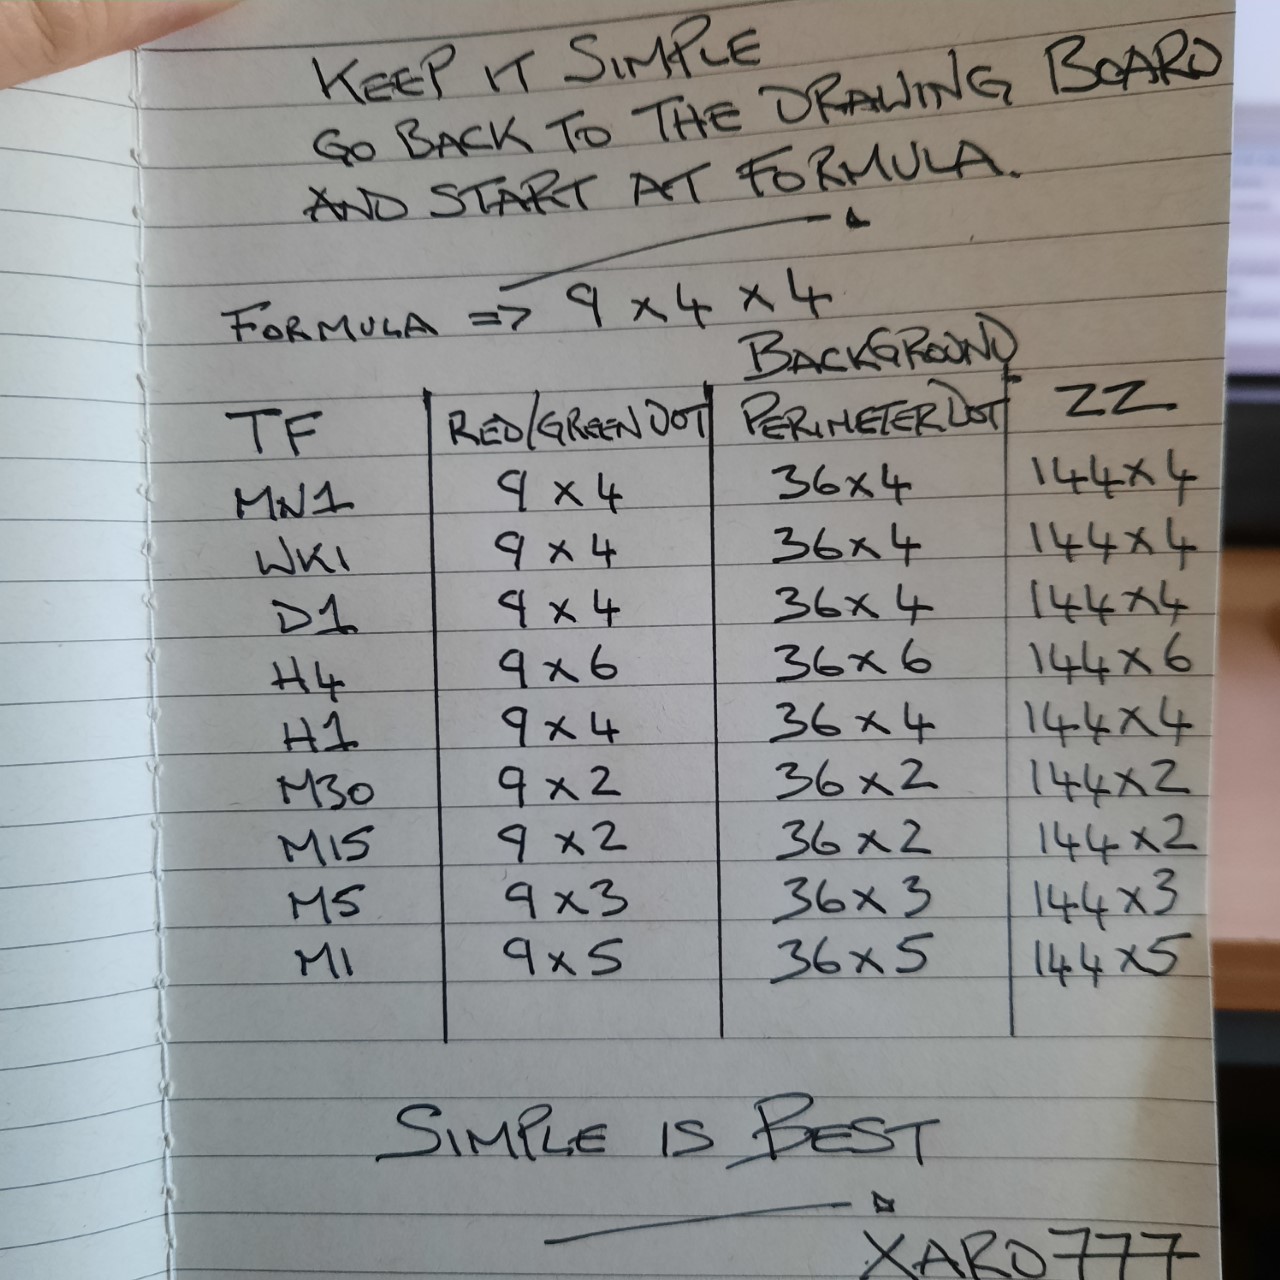 KEEP IT SIMPLE
GO BACK TO THE DRAWING BOARD
AND START AT FORMULA.
FORMULA => 9 x 4 x 4
BACKGROUND
TF RED/GREEN DOT PERIMETER DOT ZZ
MN1 9 x 4 36 x 4 144 x 4
WK1 9 x 4 36 x 4 144 x 4
D1 9 x 4 36 x 4 144 x 4
H4 9 x 6 36 x 6 144 x 6
H1 9 x 4 36 x 4 144 x 4
M30 9 x 2 36 x 2 144 x 2
M15 9 x 2 36 x 2 144 x 2
M5 9 x 3 36 x 3 144 x 3
M1 9 x 5 36 x 5 144 x 5
SIMPLE IS BEST
XARD777